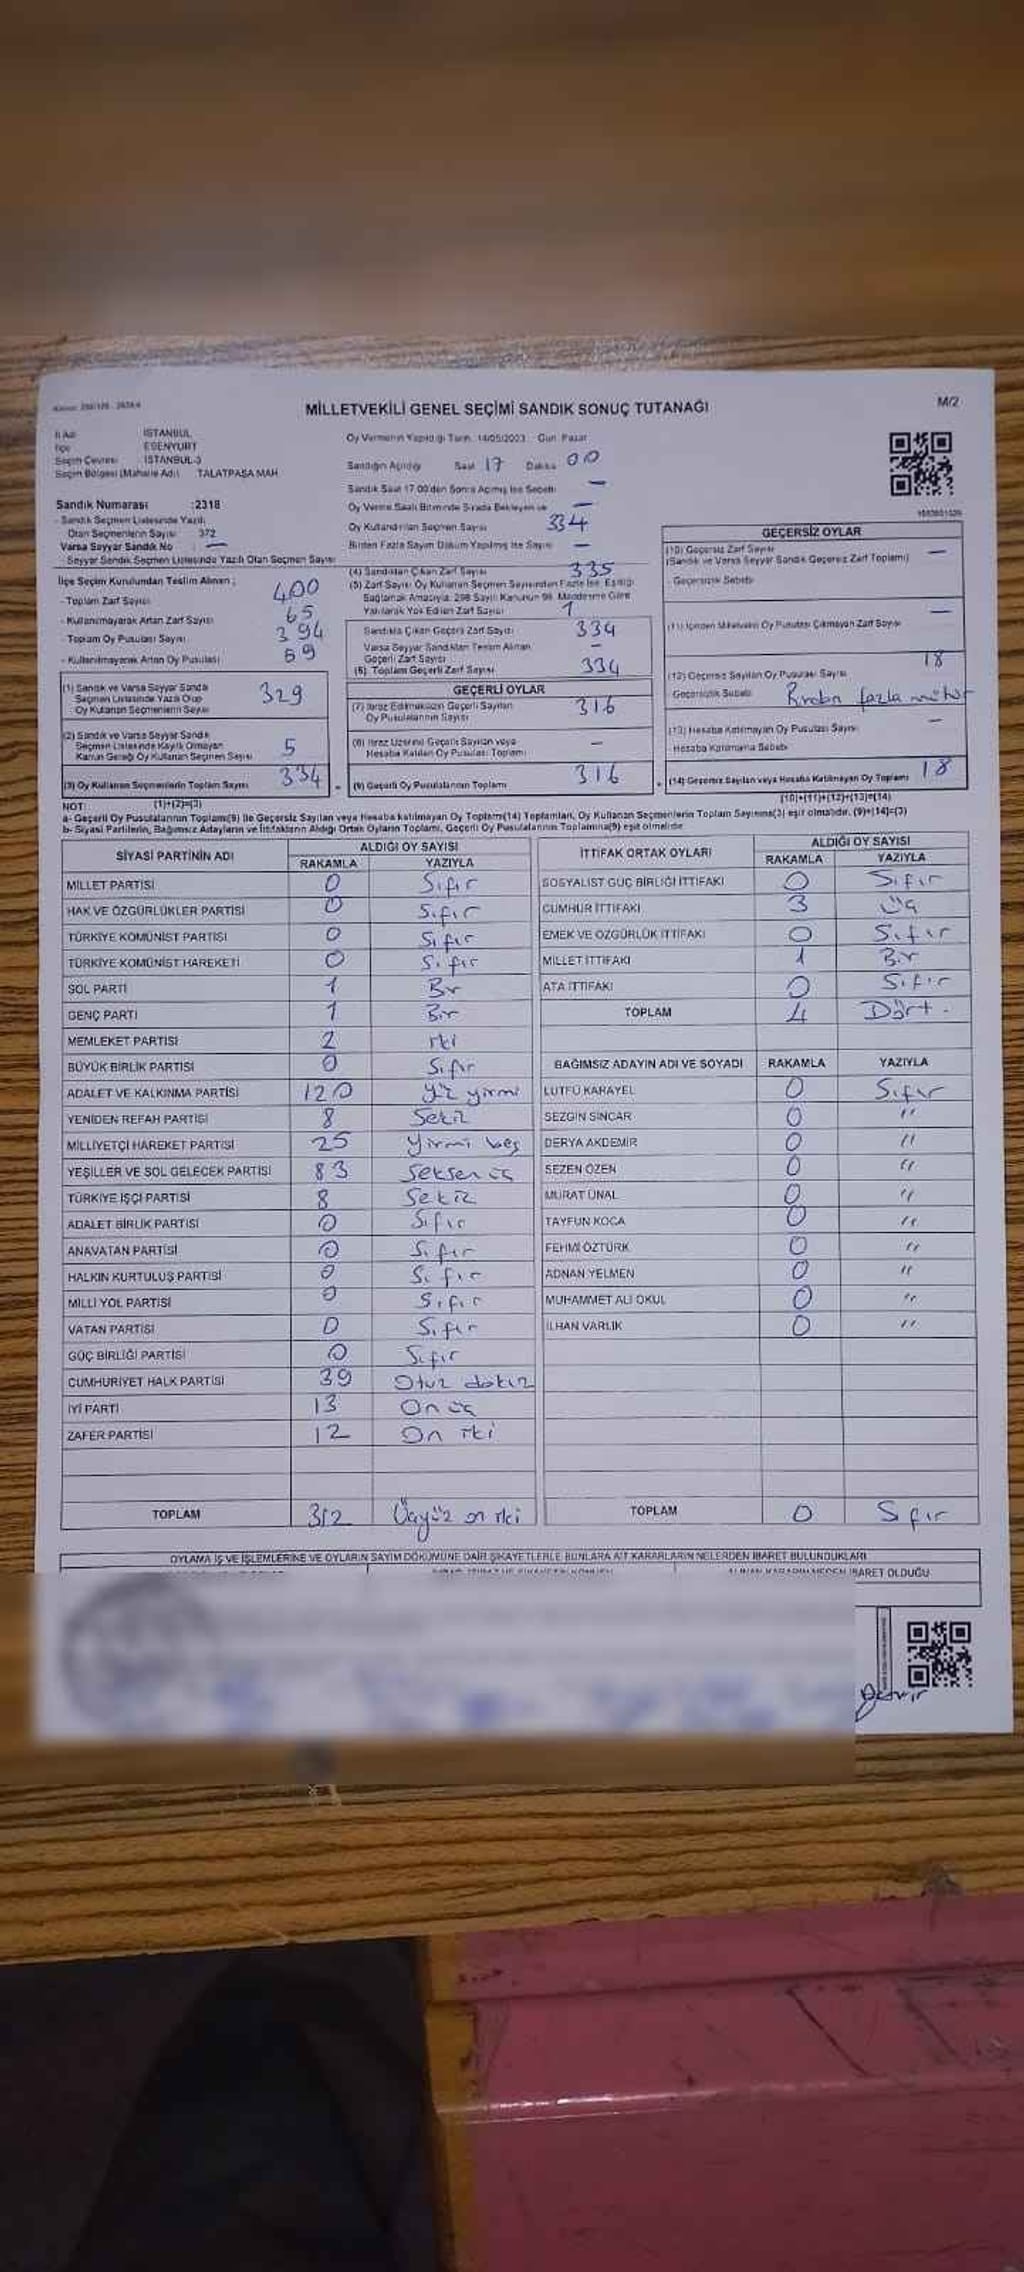 MİLLETVEKİLİ GENEL SEÇİMİ SANDIK SONUÇ TUTANAĞI
M/2
İl Adı İSTANBUL
İlçe ESENYURT
Seçim Çevresi İSTANBUL-3
Seçim Bölgesi (Mahalle Adı) TALATPAŞA MAH
Sandık Numarası :2318
- Sandık Seçmen Listesinde Yazılı
Olan Seçmenlerin Sayısı 372
Varsa Seyyar Sandık No —
- Seyyar Sandık Seçmen Listesinde Yazılı Olan Seçmen Sayısı
İlçe Seçim Kurulundan Teslim Alınan ;
- Toplam Zarf Sayısı 400
- Kullanılmayarak Artan Zarf Sayısı 65
- Toplam Oy Pusulası Sayısı 394
- Kullanılmayarak Artan Oy Pusulası 59
(1) Sandık ve Varsa Seyyar Sandık
Seçmen Listesinde Yazılı Olup
Oy Kullanan Seçmenlerin Sayısı 329
(2) Sandık ve Varsa Seyyar Sandık
Seçmen Listesinde Kayıtlı Olmayan
Kanun Gereği Oy Kullanan Seçmen Sayısı 5
(3) Oy Kullanan Seçmenlerin Toplam Sayısı 334
(1)+(2)=(3)
Oy Vermenin Yapıldığı Tarih: 14/05/2023 Gün: Pazar
Sandığın Açıldığı Saat 17 Dakika 00
Sandık Saat 17:00'den Sonra Açılmış İse Sebebi —
Oy Verme Saati Bitiminde Sırada Bekleyen ve —
Oy Kullandırılan Seçmen Sayısı 334
Birden Fazla Sayım Döküm Yapılmış İse Sayısı —
(4) Sandıktan Çıkan Zarf Sayısı 335
(5) Zarf Sayısı Oy Kullanan Seçmen Sayısından Fazla İse, Eşitliği
Sağlamak Amacıyla; 298 Sayılı Kanunun 98. Maddesine Göre
Yakılarak Yok Edilen Zarf Sayısı 1
Sandıkta Çıkan Geçerli Zarf Sayısı 334
Varsa Seyyar Sandıktan Teslim Alınan
Geçerli Zarf Sayısı —
(6) Toplam Geçerli Zarf Sayısı 334
GEÇERLİ OYLAR
(7) İtiraz Edilmeksizin Geçerli Sayılan
Oy Pusulalarının Sayısı 316
(8) İtiraz Üzerine Geçerli Sayılan veya
Hesaba Katılan Oy Pusulası Toplamı —
(9) Geçerli Oy Pusulalarının Toplamı 316
GEÇERSİZ OYLAR
(10) Geçersiz Zarf Sayısı
(Sandık ve Varsa Seyyar Sandık Geçersiz Zarf Toplamı) —
Geçersizlik Sebebi
(11) İçinden Milletvekili Oy Pusulası Çıkmayan Zarf Sayısı —
(12) Geçersiz Sayılan Oy Pusulası Sayısı 18
Geçersizlik Sebebi Birden fazla mühür
(13) Hesaba Katılmayan Oy Pusulası Sayısı —
Hesaba Katılmama Sebebi
(14) Geçersiz Sayılan veya Hesaba Katılmayan Oy Toplamı 18
(10)+(11)+(12)+(13)=(14)
NOT:
a- Geçerli Oy Pusulalarının Toplamı(9) ile Geçersiz Sayılan veya Hesaba katılmayan Oy Toplamı(14) Toplamları, Oy Kullanan Seçmenlerin Toplam Sayısına(3) eşit olmalıdır. (9)+(14)=(3)
b- Siyasi Partilerin, Bağımsız Adayların ve İttifakların Aldığı Ortak Oyların Toplamı, Geçerli Oy Pusulalarının Toplamına(9) eşit olmalıdır
SİYASİ PARTİNİN ADI ALDIĞI OY SAYISI
RAKAMLA YAZIYLA
MİLLET PARTİSİ 0 Sıfır
HAK VE ÖZGÜRLÜKLER PARTİSİ 0 Sıfır
TÜRKİYE KOMÜNİST PARTİSİ 0 Sıfır
TÜRKİYE KOMÜNİST HAREKETİ 0 Sıfır
SOL PARTİ 1 Bir
GENÇ PARTİ 1 Bir
MEMLEKET PARTİSİ 2 iki
BÜYÜK BİRLİK PARTİSİ 0 Sıfır
ADALET VE KALKINMA PARTİSİ 120 yüz yirmi
YENİDEN REFAH PARTİSİ 8 Sekiz
MİLLİYETÇİ HAREKET PARTİSİ 25 yirmi beş
YEŞİLLER VE SOL GELECEK PARTİSİ 83 Seksen üç
TÜRKİYE İŞÇİ PARTİSİ 8 Sekiz
ADALET BİRLİK PARTİSİ 0 Sıfır
ANAVATAN PARTİSİ 0 Sıfır
HALKIN KURTULUŞ PARTİSİ 0 Sıfır
MİLLİ YOL PARTİSİ 0 Sıfır
VATAN PARTİSİ 0 Sıfır
GÜÇ BİRLİĞİ PARTİSİ 0 Sıfır
CUMHURİYET HALK PARTİSİ 39 Otuz dokuz
İYİ PARTİ 13 On üç
ZAFER PARTİSİ 12 On iki
TOPLAM 312 Üçyüz on iki
İTTİFAK ORTAK OYLARI ALDIĞI OY SAYISI
RAKAMLA YAZIYLA
SOSYALİST GÜÇ BİRLİĞİ İTTİFAKI 0 Sıfır
CUMHUR İTTİFAKI 3 Üç
EMEK VE ÖZGÜRLÜK İTTİFAKI 0 Sıfır
MİLLET İTTİFAKI 1 Bir
ATA İTTİFAKI 0 Sıfır
TOPLAM 4 Dört.
BAĞIMSIZ ADAYIN ADI VE SOYADI RAKAMLA YAZIYLA
LÜTFÜ KARAYEL 0 Sıfır
SEZGİN SİNCAR 0 "
DERYA AKDEMİR 0 "
SEZEN ÖZEN 0 "
MURAT ÜNAL 0 "
TAYFUN KOCA 0 "
FEHMİ ÖZTÜRK 0 "
ADNAN YELMEN 0 "
MUHAMMET ALİ OKUL 0 "
İLHAN VARLIK 0 "
TOPLAM 0 Sıfır
OYLAMA İŞ VE İŞLEMLERİNE VE OYLARIN SAYIM DÖKÜMÜNE DAİR ŞİKAYETLERLE BUNLARA AİT KARARLARIN NELERDEN İBARET BULUNDUKLARI